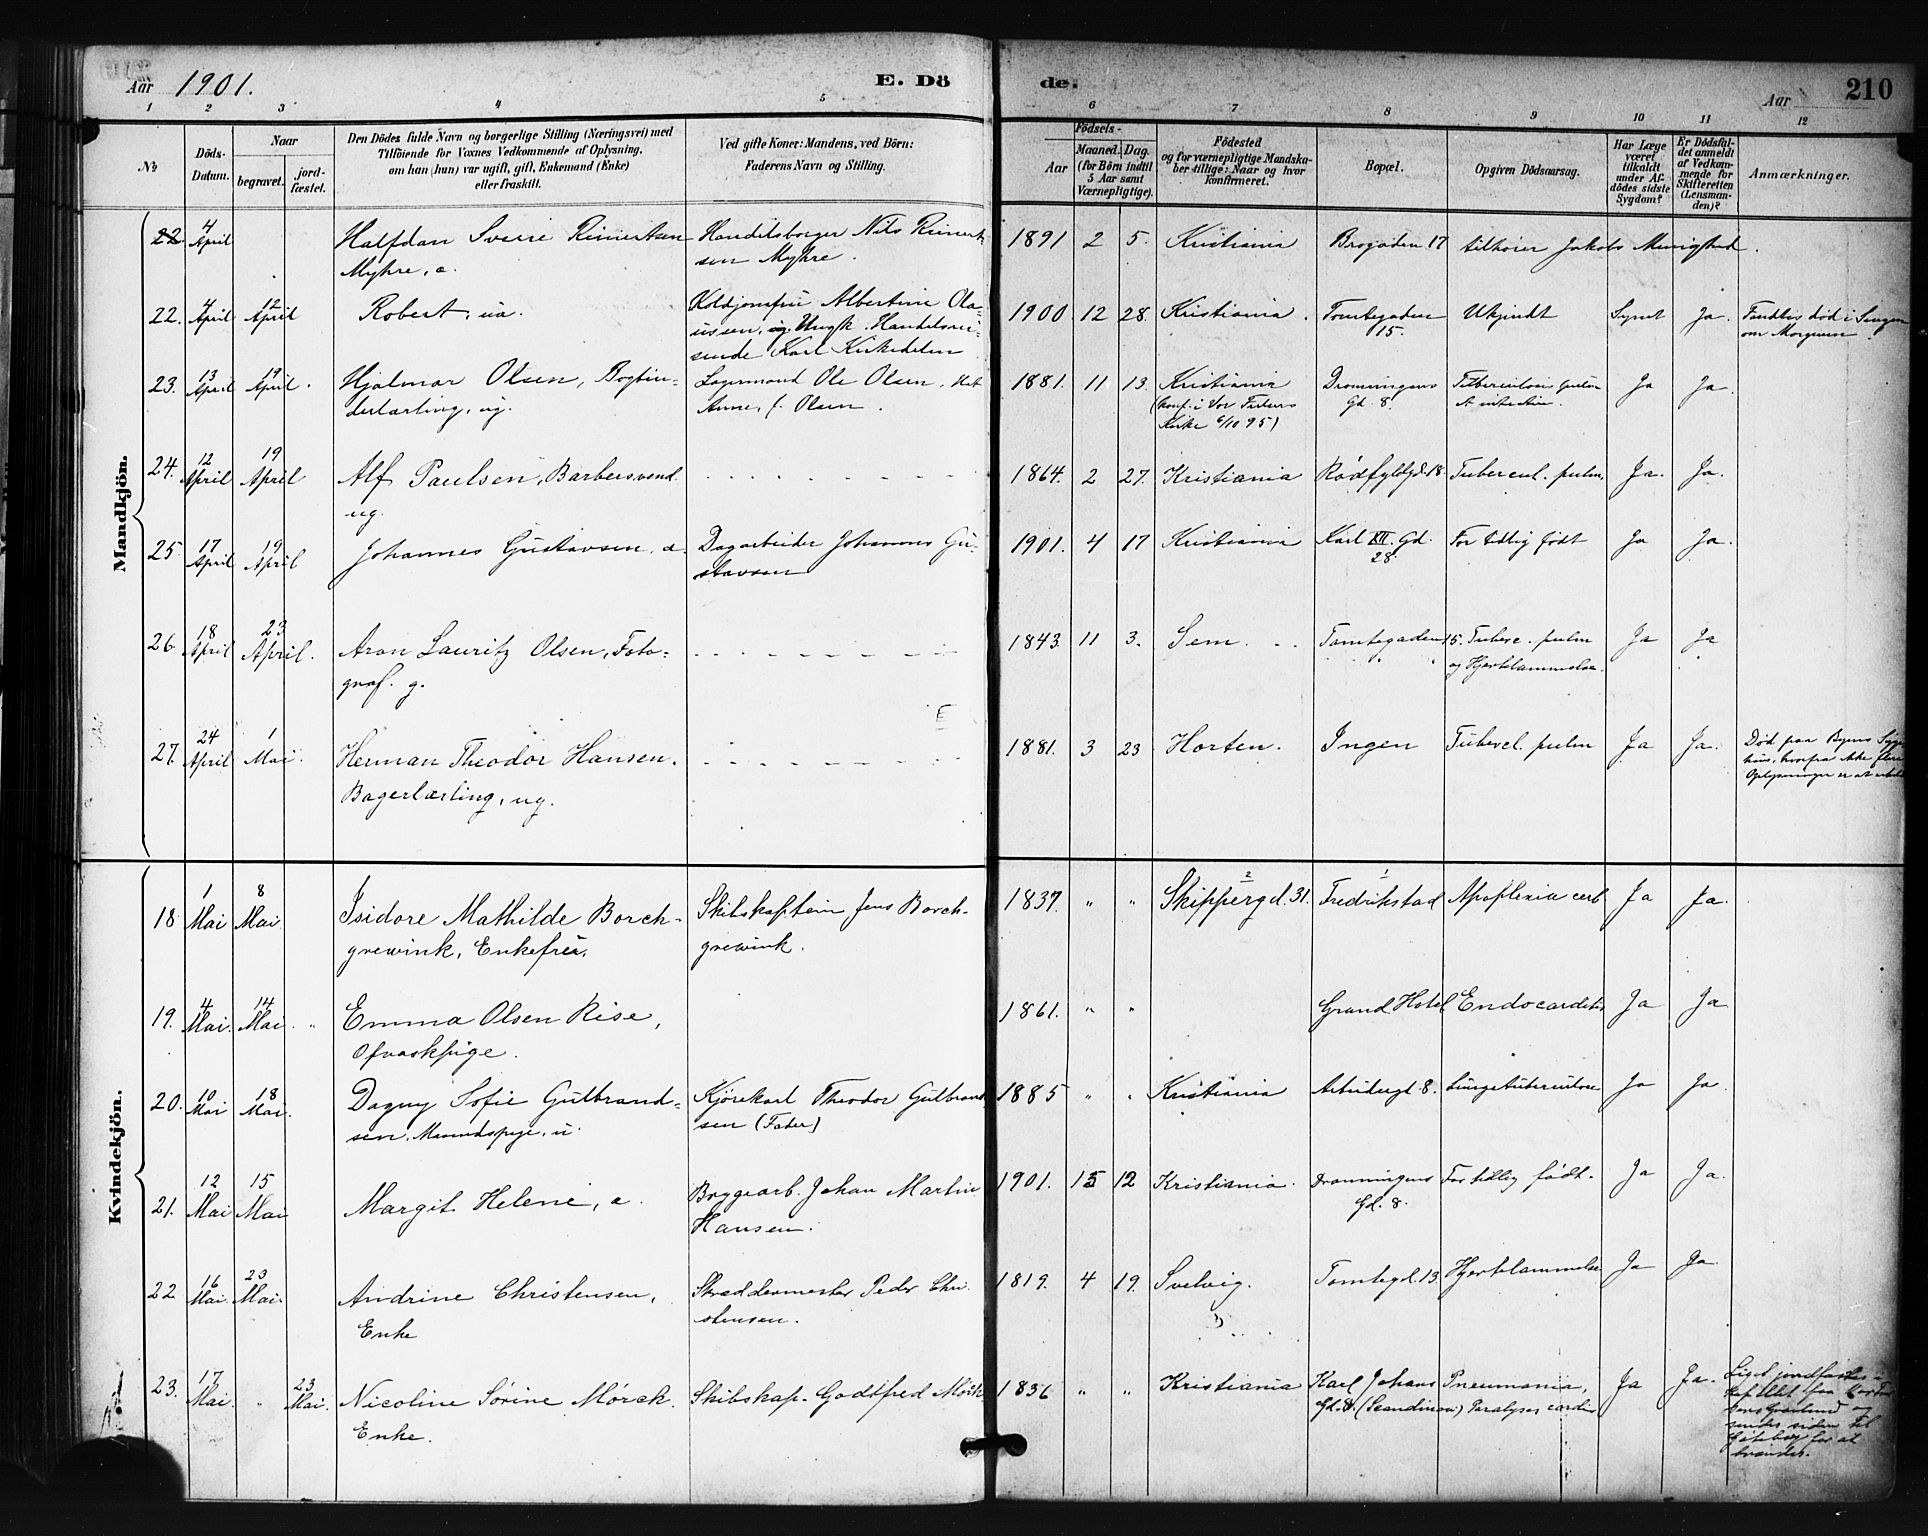 Aar 1901. E. Dö de. Aar 210
1 2 3 4 5 6 7 8 9 10 11 12
No Döds-Datum. Naar begravet. jordfæstet.
Den Dödes fulde Navn og borgerlige Stilling (Næringsvei) med
Tilföiende for Voxnes Vedkommende af Oplysning,
om han (hun) var ugift, gift, Enkemand (Enke)
eller fraskilt.
Ved gifte Koner: Mandens, ved Börn:
Faderens Navn og Stilling.
Födsels-
Aar Maaned. Dag.
(for Börn indtil
5 Aar samt
Værnepligtige).
Födested
og for værnepligtige Mandska-
ber tillige: Naar og hvor
konfirmeret.
Bopæl.
Opgiven Dödsaarsag.
Har Læge
været
tilkaldt
under Af-
dödes sidste
Sygdom?
Er Dödsfal-
det anmeldt
af Vedkom-
mende for
Skifteretten
(Lensman-
den)?
Anmærkninger.
Mandkjön.
22 4 April Halfdan Sverre Reinertsen Handelsborger Nils Reinert- 1891 2 5. Kristiania Brogaden 17 tilhører Jakobs Menighed.
Myhre, a. sen Myhre.
22. 4 April 12 April Robert, ua. Albertine Ola- 1900 12 28. Kristiania. Tomtegaden Ukjendt Synet Ja. Fandtes død i Sengen
ussen, og Ungk. Handelsrei- 15. om Morgenen.
sende Karl Kirkedelen
23. 13 April 19 April. Hjalmar Olsen, Bogbin- Lagermand Ole Olsen. 1881. 11 13. Kristiania Dronningens Ja Ja.
derlærling, ug. Anne, f. Olsen. (konf. i Vor Frelsers Gd. 8.
Kirke 6/10 95)
24. 12 April 19 April Alf Paulsen, Barbersvend 1864. 2 27. Kristiania Rødfyldgd. 18. Tubercul. pulm. Ja. Ja.
ug.
25. 17 April 19 April Johannes Gustavsen, a. Dagarbeider Johannes Gu- 1901. 4 17 Kristiania Karl XII. Gd. For tidlig født Ja Ja.
stavsen 28.
26 18 April 23 April. Aron Lauritz Olsen, Foto- 1843. 11 3. Sem. Tomtegaden 15. Tuberc. pulm Ja Ja
graf. g. og Hjertelammelse.
27. 24 April 1 Mai. Herman Theodor Hansen. 1881. 3 23 Horten. Ingen Tubercl. pulm Ja Ja. Død paa Byens Syge-
Bagerlærling, ug. hus, hvorfra ikke flere
Oplysninger er at
Kvindekjön.
18 1 Mai 8 Mai. Isidore Mathilde Borch- Skibskaptein Jens Borch- 1837. " " Skippergd. 31. Fredrikstad Apoplexia cerb Ja Ja.
grewink, Enkefrue. grewink.
19. 4 Mai. 14 Mai. Emma Olsen Rise, 1861. " " Grand Hotel Endocarditis Ja Ja
Opvaskpige.
20. 10 Mai 18 Mai. Dagny Sofie Gulbrand- Kjørekarl Theodor Gulbrand 1885 " " Kristiania Arbeidergd. 8. Lungetuberculose Ja Ja.
sen, u. sen (Fader)
21. 12 Mai 15 Mai Margit Helene, a Bryggearb. Johan Martin 1901. 5 12 Kristiania. Dronningens For tidlig født. Ja Ja.
Hansen. Gd. 8.
22 16 Mai. 23 Mai. Andrine Christensen, Skræddermester Peder Chri- 1819. 4 19. Svelvig. Tomtegd. 13. Hjertelammelse Ja Ja.
Enke stensen.
23. 17 Mai. " 23 Mai. Nicoline Sørine Mørck. Skibskap. Godtfred Mørk 1836 " " Kristiania Karl Johans Pneumonia, Ja Ja. Liget jordfæstes i
Enke. Gd. (Scandinav) Paralyser cardi Kapellet paa Vor Frel-
Gravlund og
sendes siden til
Gøteborg for at
brændes.